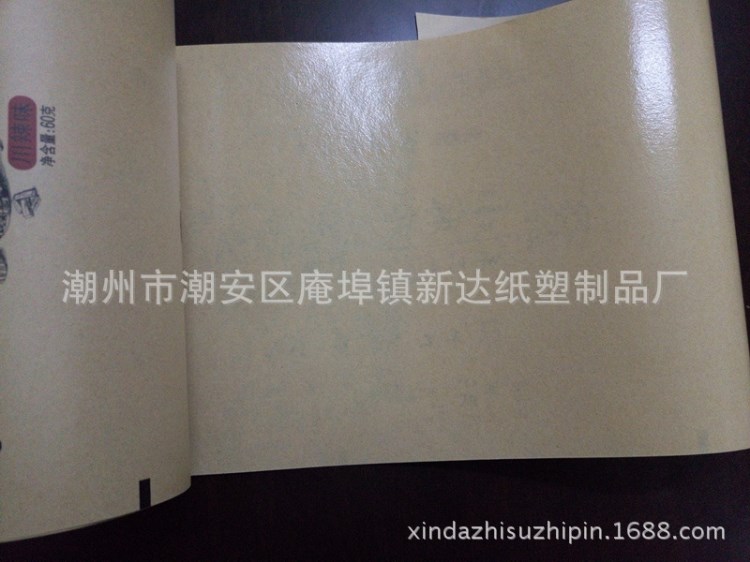 川辣味
净含量:60克
潮州市潮安区庵埠镇新达纸塑制品厂
xindazhisuzhipin.1688.com